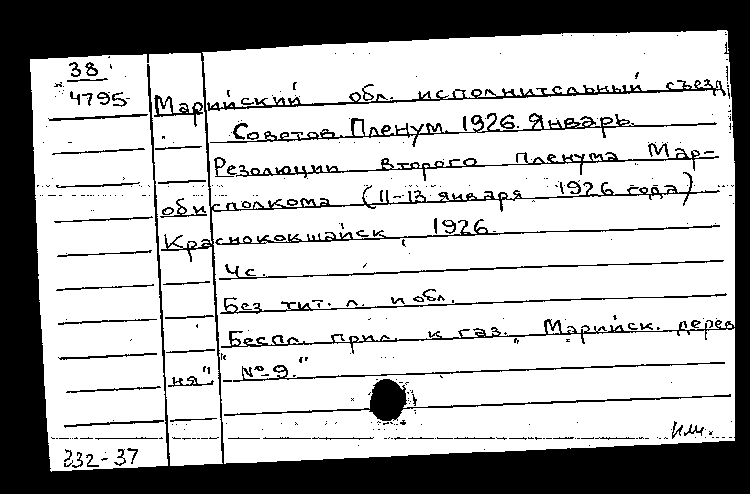 38
4795
Марийский обл. исполнительный съезд
Советов. Пленум. 1926. Январь.
Резолюции второго пленума Мар-
обисполкома (11-13 января 1926 года)
Краснококшайск, 1926.
4 с.
Без тит. л. и обл.
Беспл. прил. к газ. "Марийск. дерев
ня" №9."
332-37